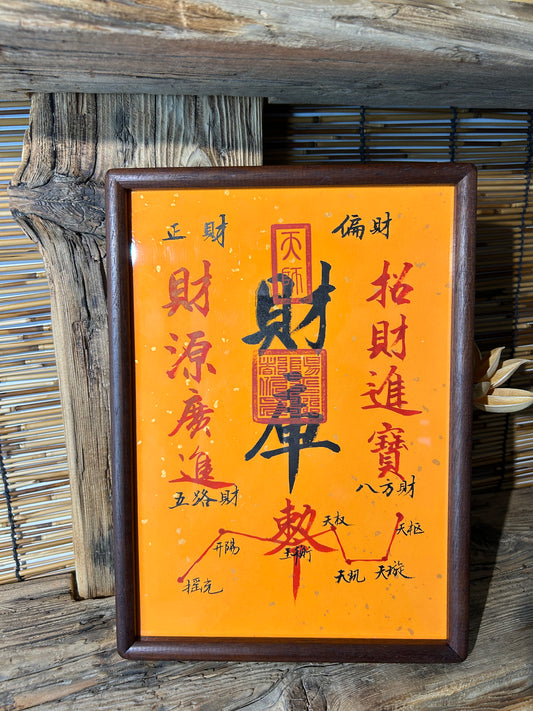 正財
偏財
天師
財庫
招財進寶
財源廣進
五路財
八方財
敕
天权
天枢
开陽
玉衡
摇光
天玑
天璇